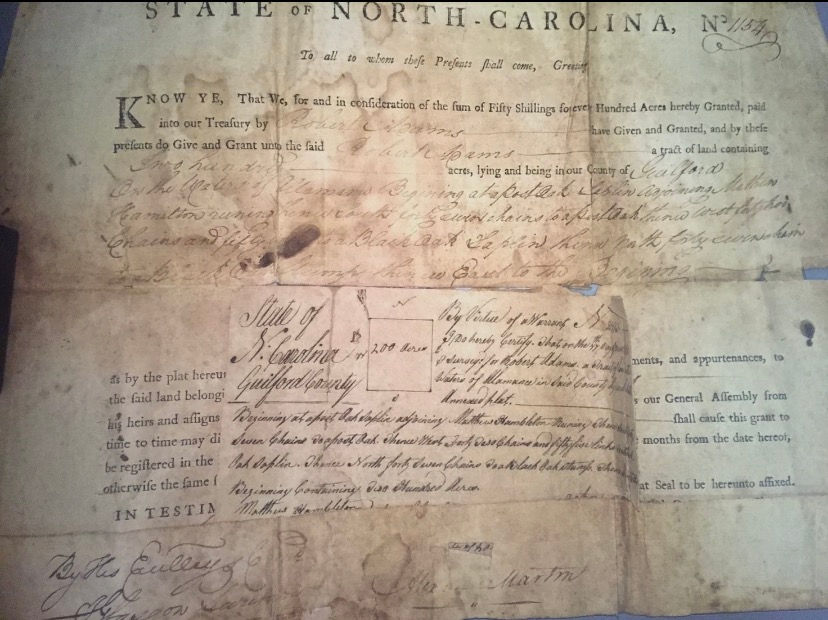 STATE OF NORTH-CAROLINA, No 1154
To all to whom these Presents shall come, Greeting
KNOW YE, That We, for and in consideration of the sum of Fifty Shillings for every Hundred Acres hereby Granted, paid
into our Treasury by Robert Adams have Given and Granted, and by these
presents do Give and Grant unto the said Robert Adams a tract of land containing
Two hundred acres, lying and being in our County of Guilford
On the Waters of Alamance Begining at a post Oak Saplin adjoining Mathew
Hamilton runing thence South forty seven chains to a post Oak thence West forty two
Chains and fifty to a Black Oak Saplin thence North forty seven chain
to a Black Oak Stump thence East to the Begining
State of
N. Carolina
Guilford County
N
200 Acres
By Virtue of a Warrant N
I do hereby Certify that on the 17
a Survey for Robert Adams a
Waters of Alamance in Said County
Annexed plat.
Beginning at a post Oak Saplin adjoining Matthew Hambleton Runing Thence
Seven Chains to a post Oak Thence West Forty two Chains and fifty five links
Oak Saplin Thence North forty Seven Chains to a black Oak Stump Thence
Beginning Containing two Hundred Acres
Matthew Hambleton
as by the plat hereun
the said land belongi
his heirs and assigns
time to time may di
be registered in the
otherwise the same s
IN TESTIM
ments, and appurtenances, to
s our General Assembly from
shall cause this grant to
months from the date hereof,
at Seal to be hereunto affixed.
By His Excellency
Alex Martin